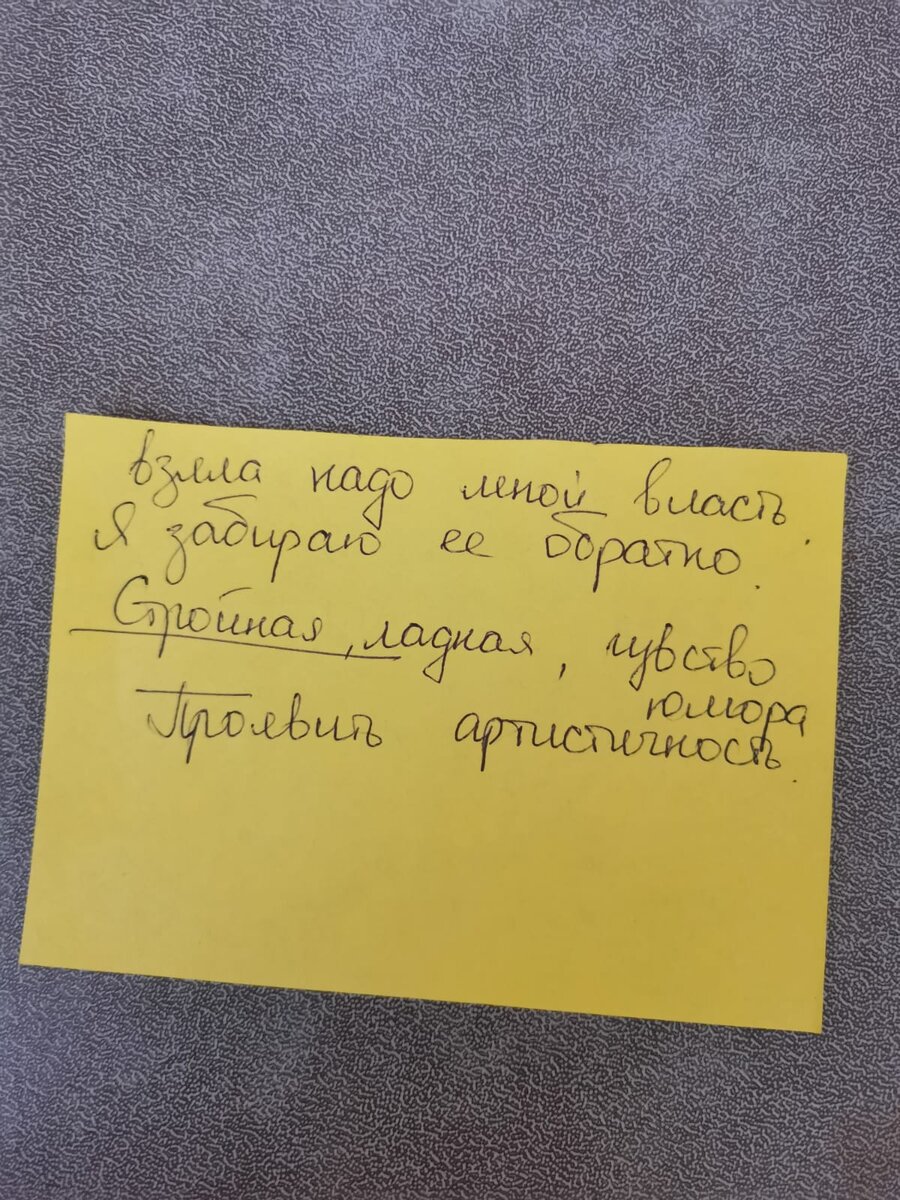 взяла надо мной власть.
Я забираю ее обратно.
Стройная, ладная, чувство
юмора
Проявить артистичность.